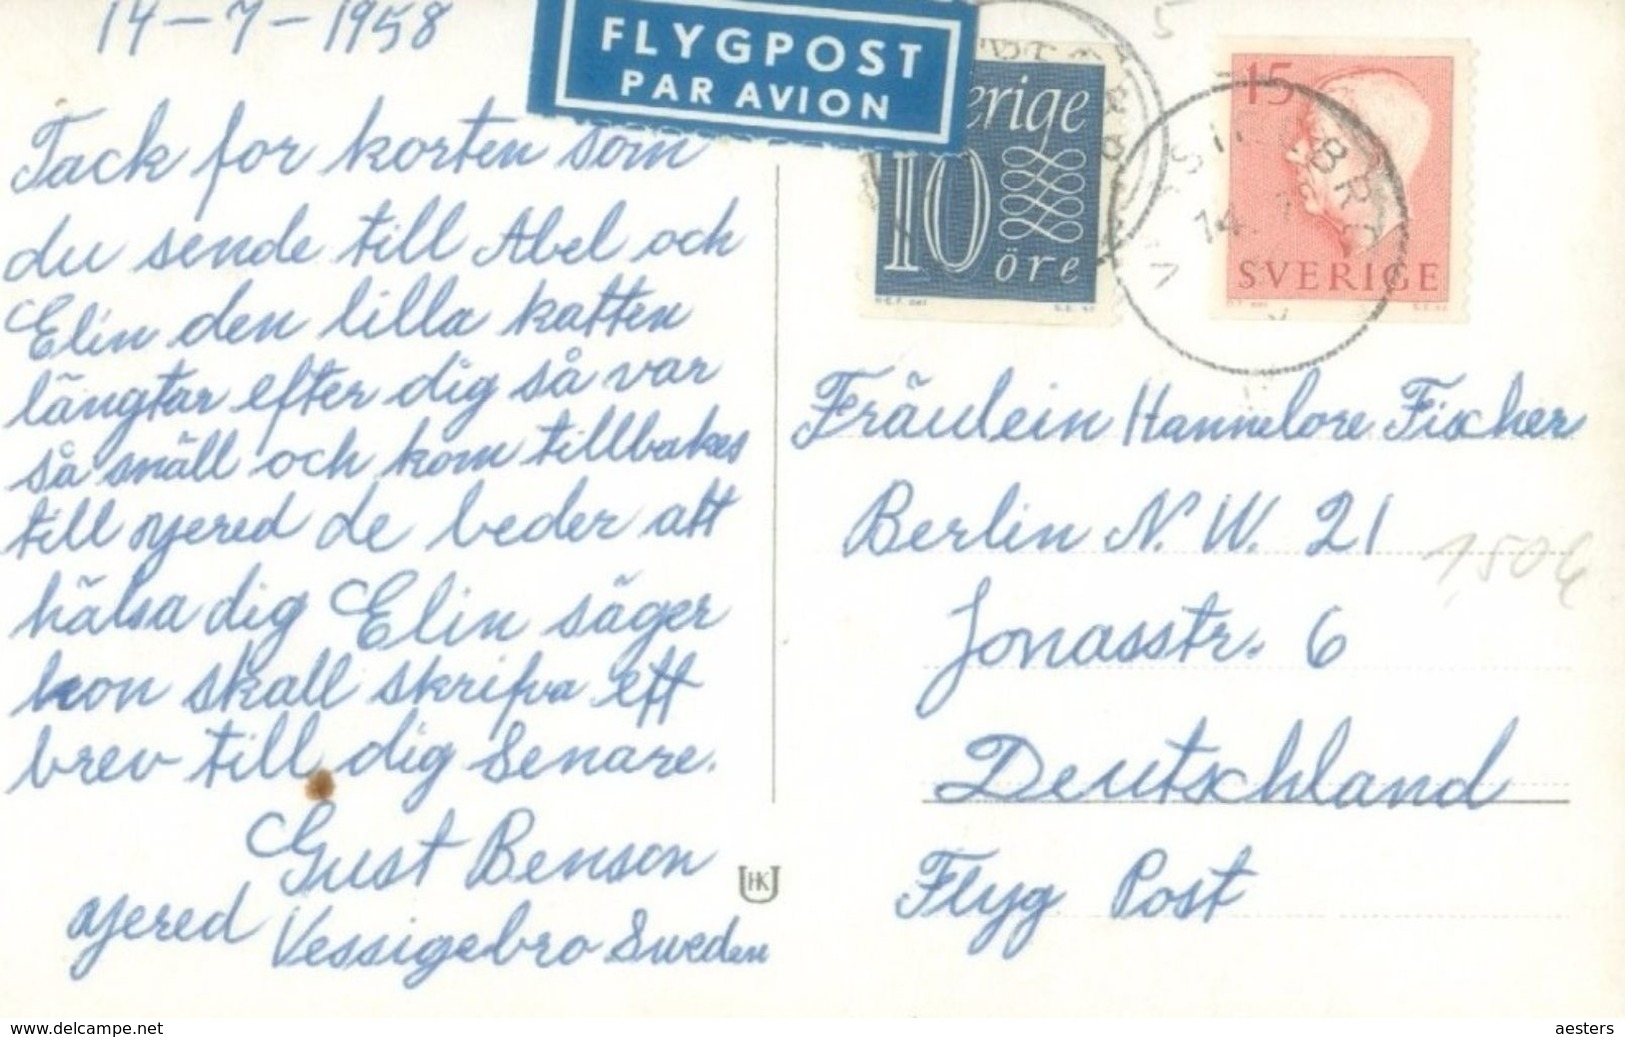 14-7-1958
FLYGPOST
PAR AVION
Tack for korten som
du sende till Abel och
Elin den lilla katten
längtar efter dig så var
så snäll och kom tillbakes
till yered de beder att
hälsa dig Elin säger
hon skall skrifva ett
brev till dig Senare.
Gust Benson
yered Vessigebro Sweden
HK
erige
10
öre
15
SVERIGE
14. 7
Fräulein Hannelore Fischer
Berlin N.W. 21
Jonasstr. 6
Deutschland
Flyg Post
www.delcampe.net
aesters